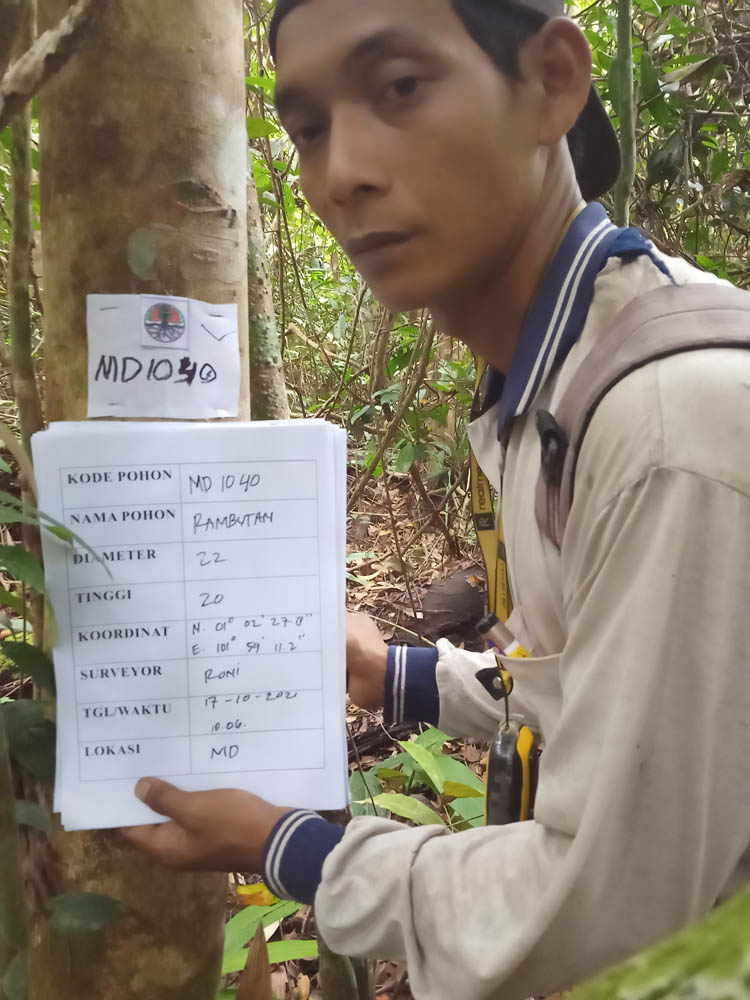 MD1040
KODE POHON MD 1040
NAMA POHON RAMBUTAN
DIAMETER 22
TINGGI 20
KOORDINAT N. 01° 02' 27.8"
E. 101° 59' 11.2"
SURVEYOR RONI
TGL/WAKTU 17-10-2021
10.06.
LOKASI MD
realme